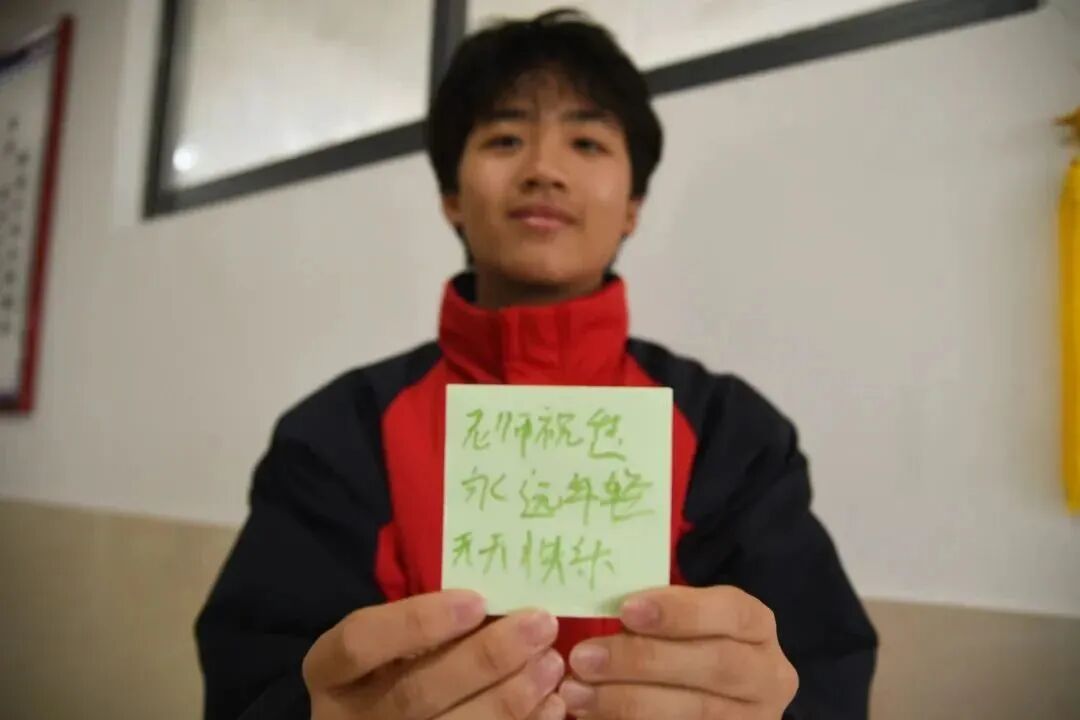 老师祝您
永远年轻
天天快乐